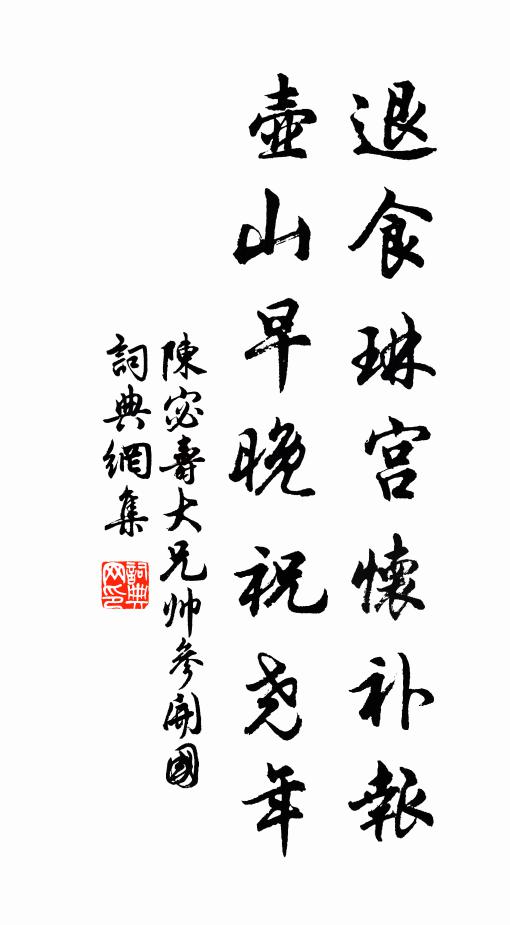 退食琳宫懷补報
壺山早晚祝尧年
陳宓壽大兄帅参開國
詞典網集
詞典网印